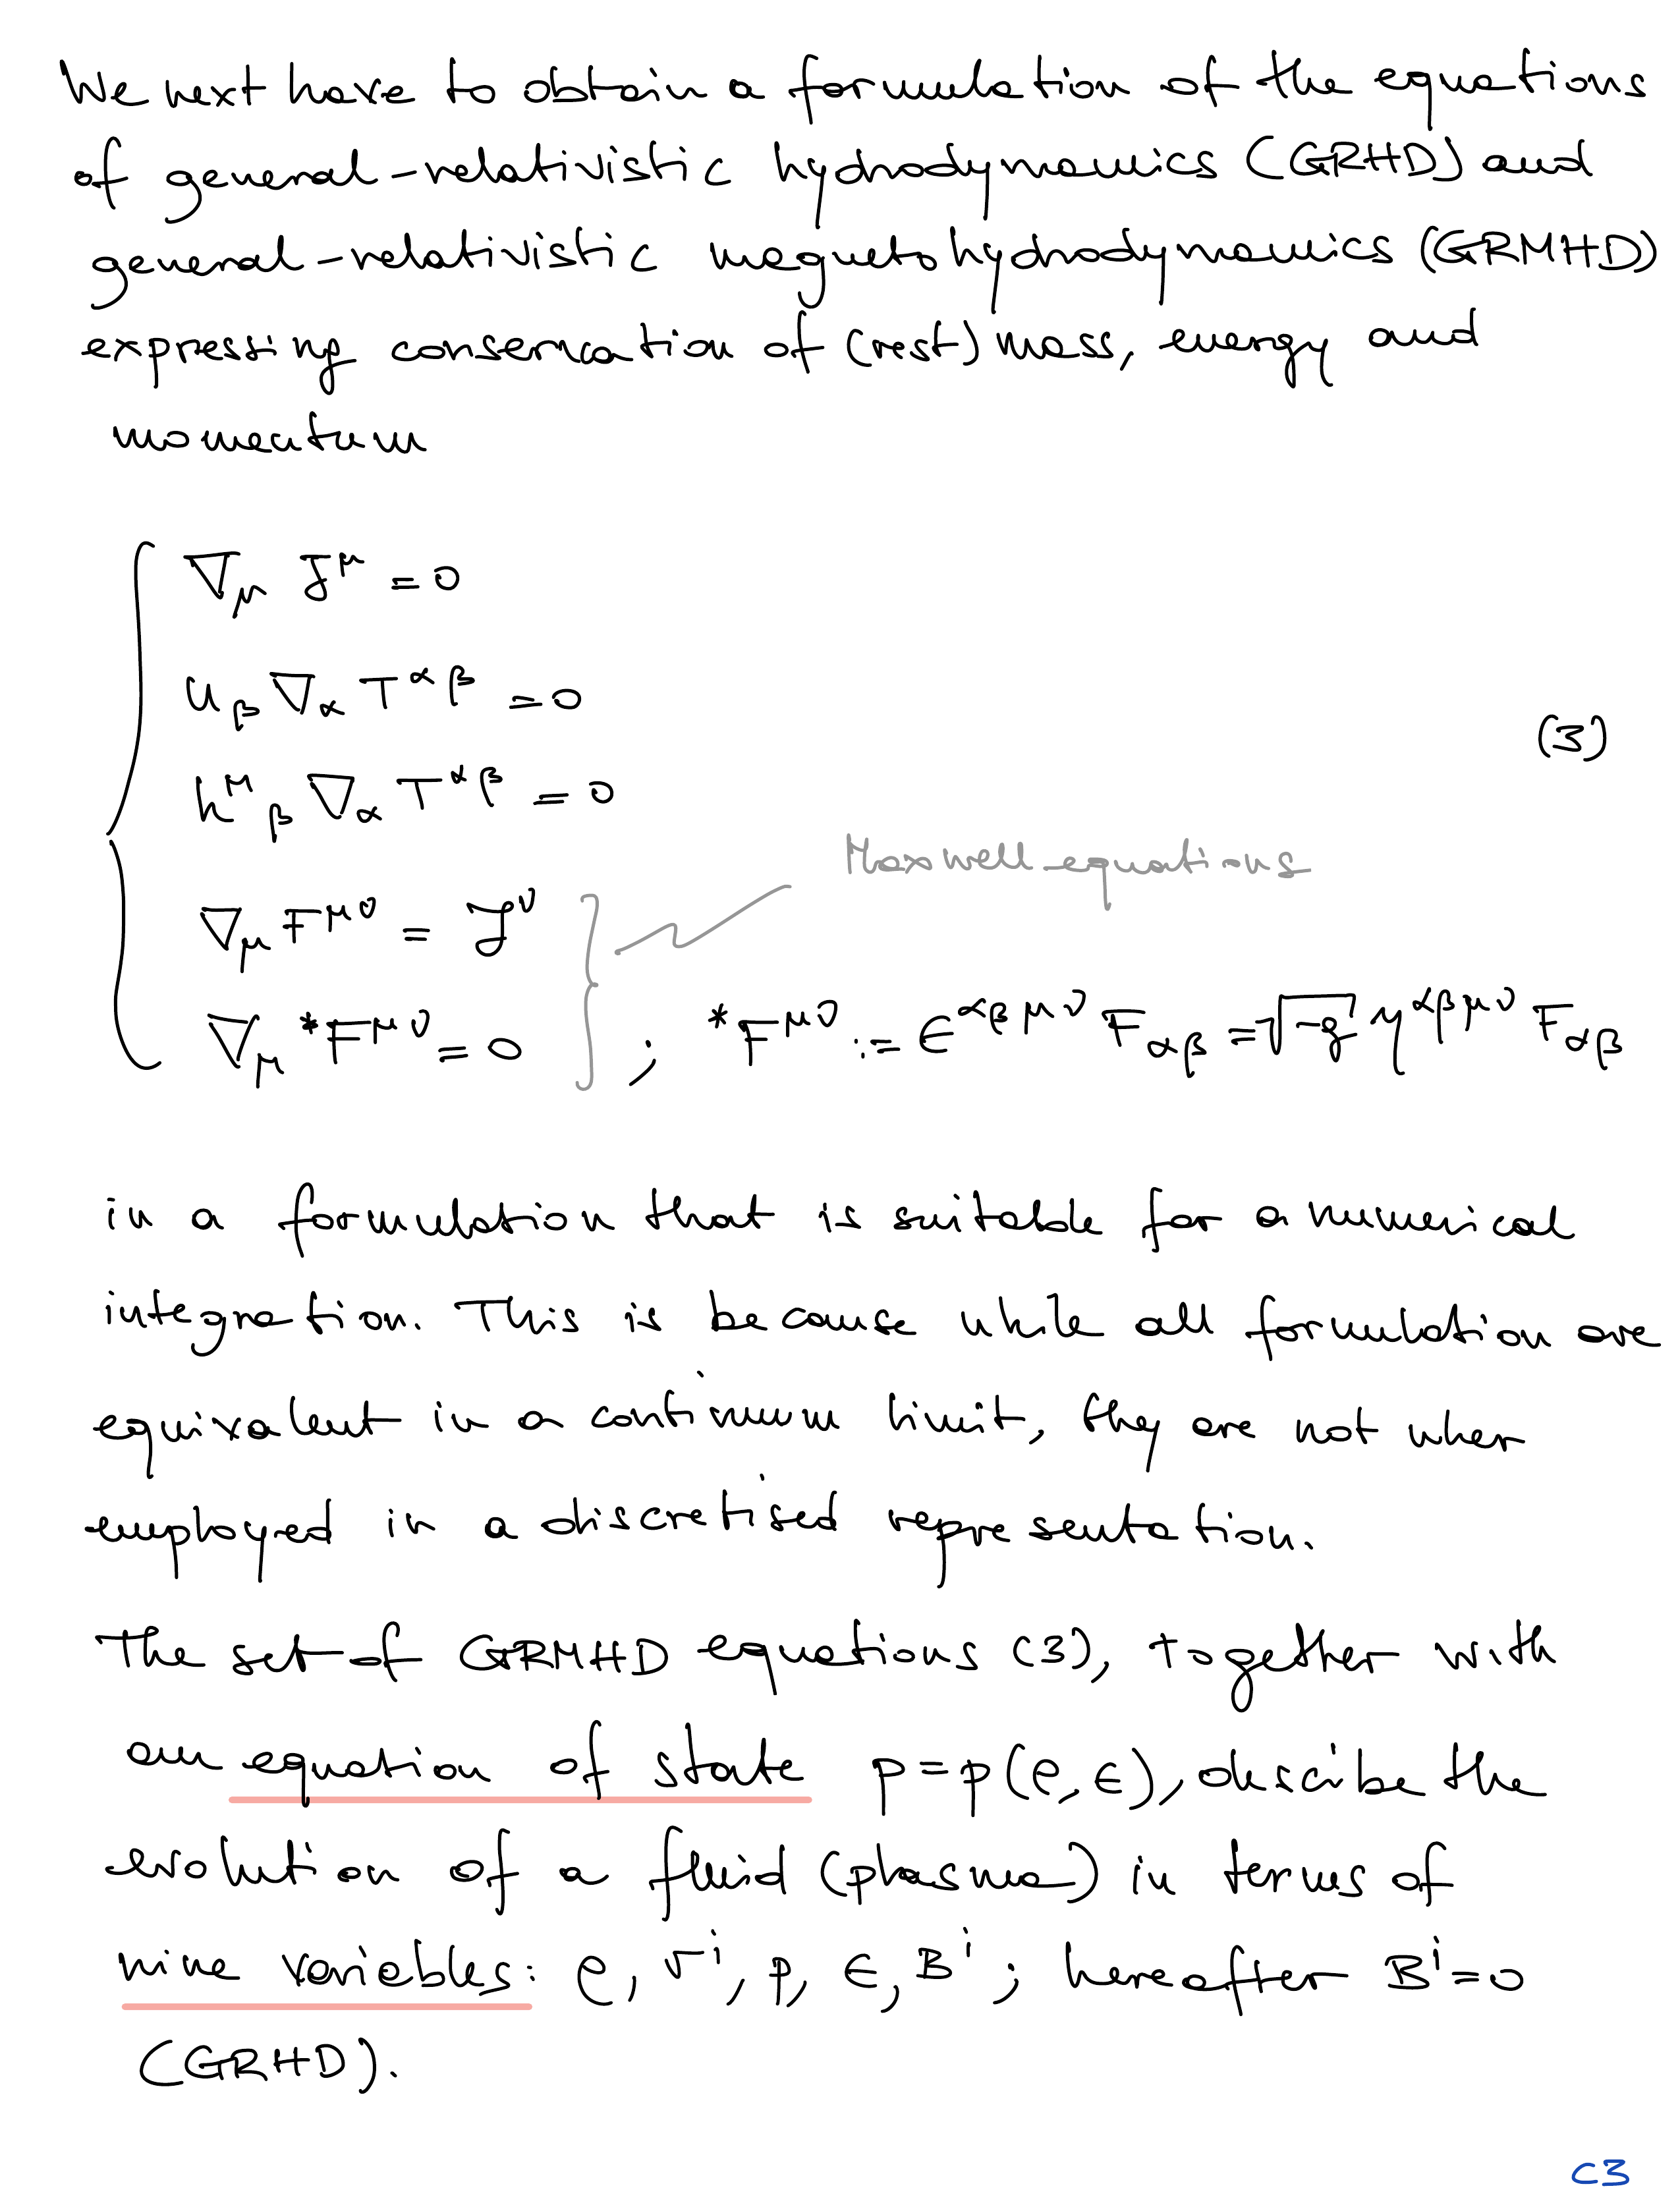 We next have to obtain a formulation of the equations
of general-relativistic hydrodynamics (GRHD) and
general-relativistic magnetohydrodynamics (GRMHD)
expressing conservation of (rest) mass, energy and
momentum
∇_μ J^μ = 0
u_β ∇_α T^{αβ} = 0
(3)
h^μ_β ∇_α T^{αβ} = 0
Maxwell equations
∇_μ F^{μν} = 𝒥^ν
∇_μ *F^{μν} = 0 ; *F^{μν} := ϵ^{αβμν} F_{αβ} = √-g η^{αβμν} F_{αβ}
in a formulation that is suitable for a numerical
integration. This is because while all formulation are
equivalent in a continuum limit, they are not when
employed in a discretised representation.
The set of GRMHD equations (3), together with
an equation of state p = p(ρ, ϵ), describe the
evolution of a fluid (plasma) in terms of
nine variables: ρ, v^i, p, ϵ, B^i ; hereafter B^i = 0
(GRHD).
C3